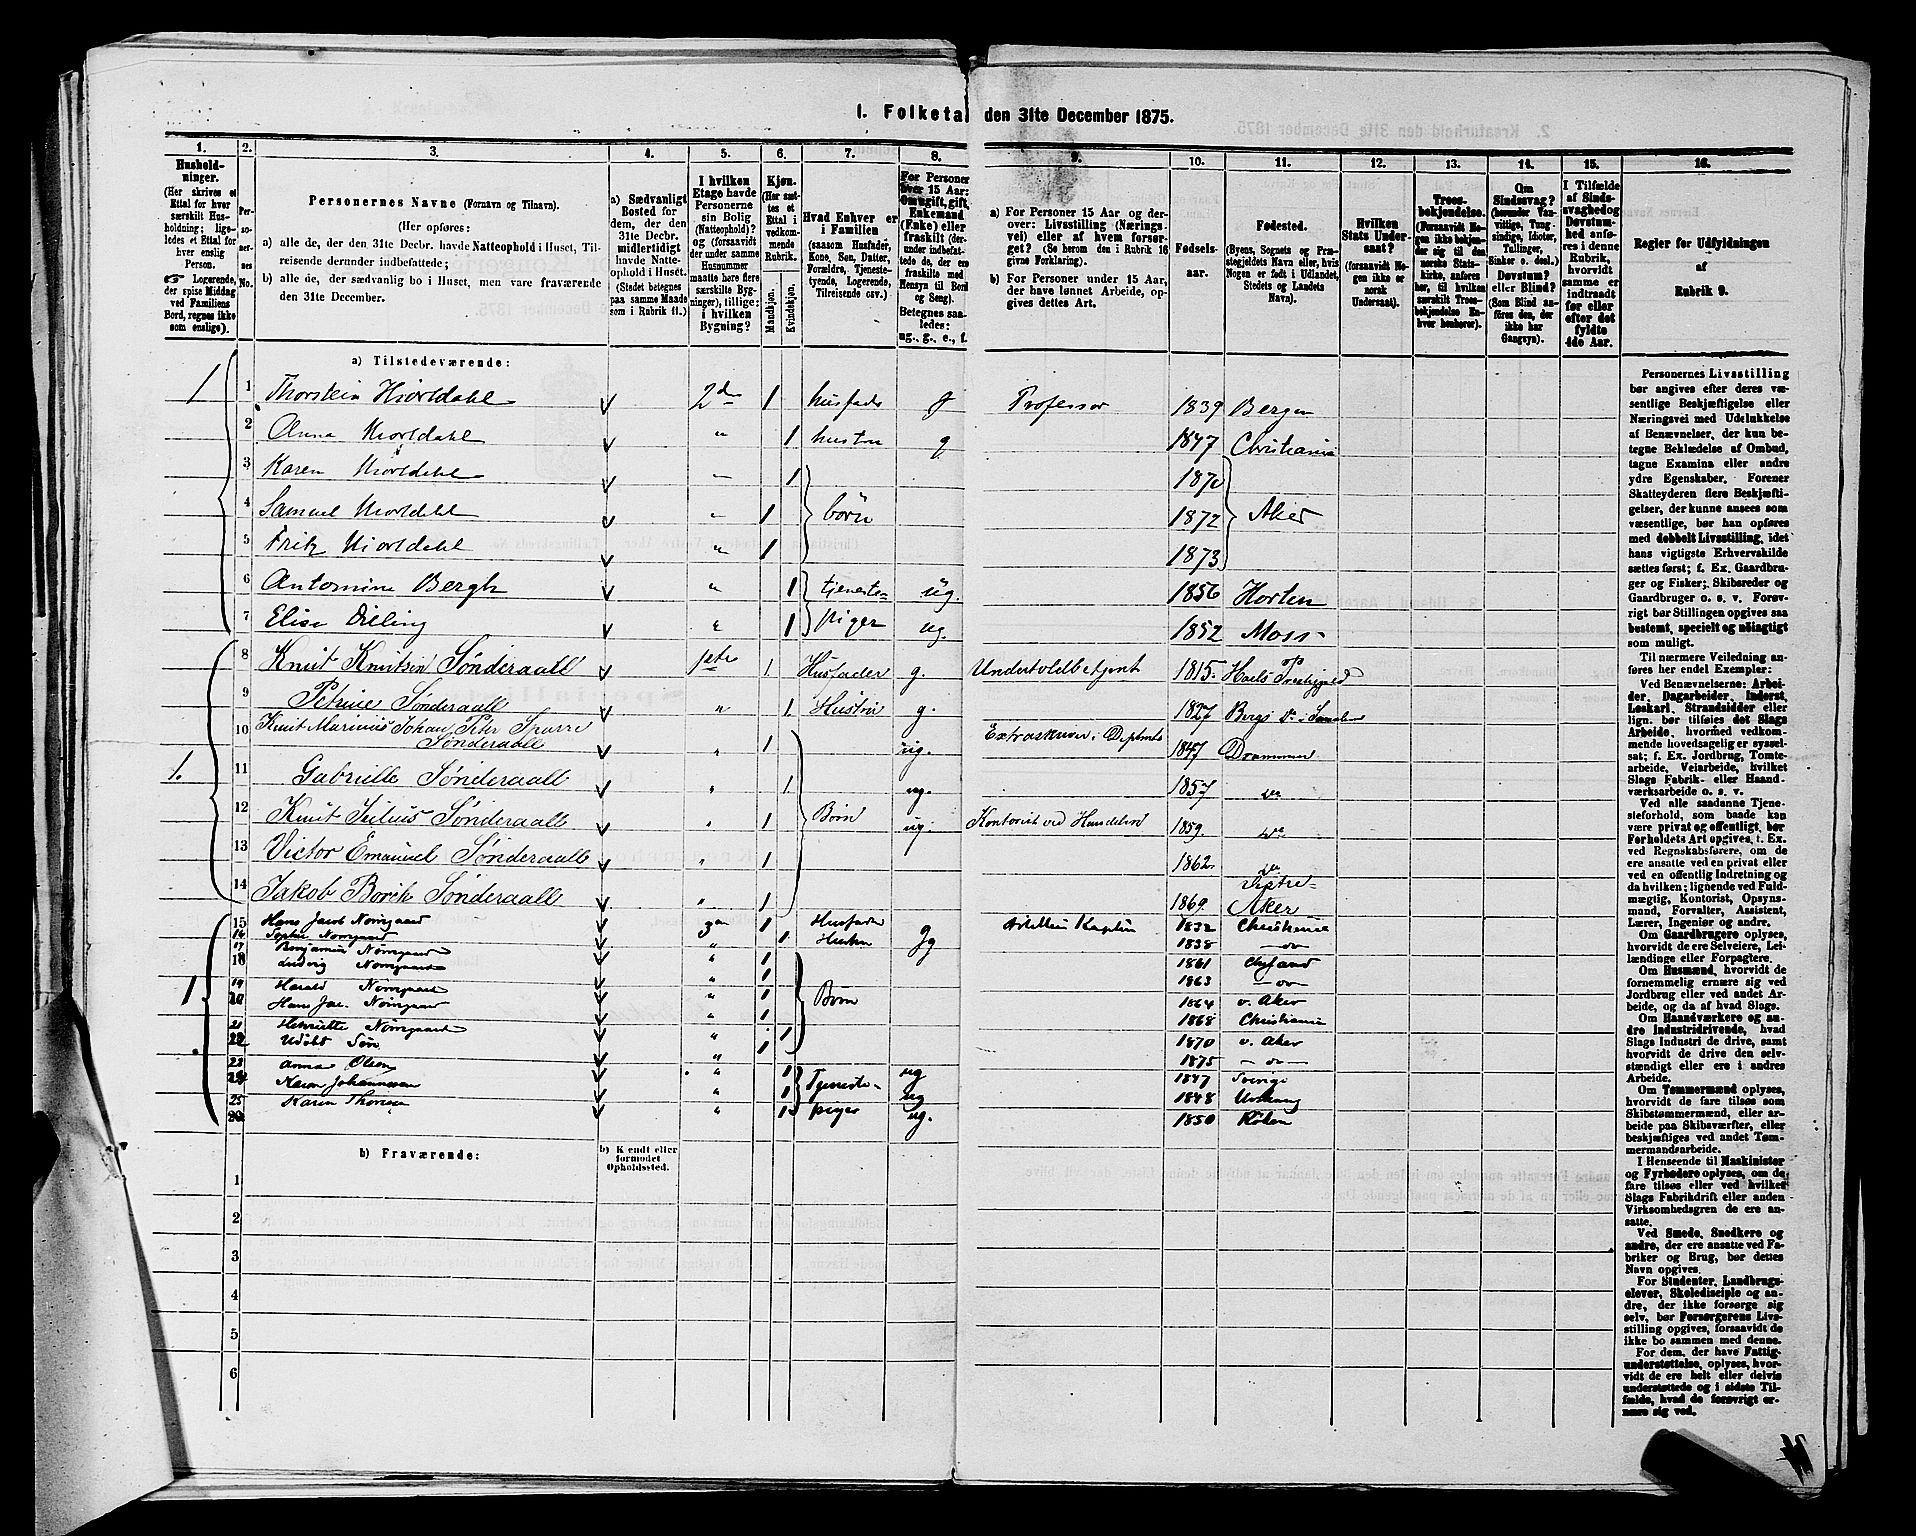 1. Folketal den 31te December 1875.
1. 2. 3. 4. 5. 6. 7. 8. 9. 10. 11. 12. 13. 14. 15. 16.
Hushold-
ninger.
(Her skrives et
Ettal for hver
særskilt Hus-
holdning; lige-
ledes et Ettal for
hver enslig
Person.
☞ Logerende,
der spise Middag
ved Familiens
Bord, regnes ikke
som enslige).
Per-
so-
ner-
nes
No.
Personernes Navne (Fornavn og Tilnavn).
(Her opføres:
a) alle de, der den 31te Decbr. havde Natteophold i Huset, Til-
reisende derunder indbefattede;
b) alle de, der sædvanlig bo i Huset, men vare fraværende
den 31te December.
a) Sædvanligt
Bosted for
dem, der den
31te Decbr.
midlertidigt
havde Natte-
ophold i Huset.
(Stedet betegnes
paa samme Maade
som i Rubrik 11.)
I hvilken
Etage havde
Personerne
sin Bolig
(Natteophold)?
og (forsaavidt
der under samme
Husnummer
maatte høre flere
særskilte Byg-
ninger), tillige:
i hvilken
Bygning?
Kjøn.
(Her sæt-
tes et
Ettal i
vedkom-
mende
Rubrik.
Mandkjøn.
Kvindekjøn.
Hvad Enhver er
i Familien
(saasom Husfader,
Kone, Søn, Datter,
Forældre, Tjeneste-
tyende, Logerende,
Tilreisende osv.)
For Personer
over 15 Aar:
Om ugift, gift,
Enkemand
(Enke) eller
fraskilt (der-
under indbefat-
tede de, der ere
fraskilte med
Hensyn til Bord
og Seng).
Betegnes saa-
ledes:
ug., g., e., f.
a) For Personer 15 Aar og der-
over: Livsstilling (Nærings-
vei) eller af hvem forsør-
get? (Se herom den i Rubrik 16
givne Forklaring).
b) For Personer under 15 Aar,
der have lønnet Arbeide, op-
gives dettes Art.
Fødsels-
aar.
Fødested.
(Byens, Sognets og Præ-
stegjeldets Navn eller, hvis
Nogen er født i Udlandet,
Stedets og Landets
Navn).
Hvilken
Stats Under-
saat?
(forsaavidt No-
gen ikke er
norsk
Undersaat).
Troes-
bekjendelse.
(Forsaavidt No-
gen ikke bekjen-
der sig til den
norske Stats-
kirke, anføres
her, til hvilken
særskilt Troes-
bekjendelse En-
hver henhører).
Om
Sindssvag?
(herunder Van-
vittige, Tung-
sindige, Idioter,
Tullinger,
Sinker o. desl.)
Døvstum?
eller Blind?
(Som Blind an-
føres den, der
ikke har
Gangsyn).
I Tilfælde
af Sinds-
svaghed og
Døvstum-
hed anfø-
res i denne
Rubrik,
hvorvidt
samme er
indtraadt
før eller
efter det
fyldte
4de Aar.
Regler for Udfyldningen
af
Rubrik 9.
a) Tilstedeværende:
1 1 Thorstein Hiortdahl 2de 1 husfader g Professor 1839 Bergen
2 Anna Hiortdahl " 1 hustru g 1847 Christiania
3 Karen Hiortdahl " 1 1870
4 Samuel Hiortdahl " 1 børn 1872 Aker
5 Fritz Hiortdahl " 1 1873
6 Antomine Bergh " 1 tjeneste- ug. 1856 Horten
7 Elise Dilling " 1 piger ug. 1852 Moss
8 Knut Knutsen Sønderaall 1ste 1. Husfader g. Undertoldbetjent 1815. Hoels
9 Petrine Sønderaall " 1. Hustru g. 1827 Bergs
10 Knut Marinius Johan Peter Spurre
Sønderaall " 1 ug. Extraskriver i 1847 Drammen
1. 11 Gabrielle Sønderaall " 1. ug. 1857 do
12 Knut Julius Sønderaall " 1 Børn ug. Kontorist ved Handelen 1859. do
13 Victor Emanuel Sønderaall " 1 1862. do
14 Jakob Borch Sønderaall " 1 1869. Vestre-
Aker
15 Hans Jacob Nørregaard 3die 1 Husfader g Artilleri Kaptein 1832 Christiania
16 Sophie Nørregaard " 1 Hustru g 1838 — do
17 Benjamin Nørregaard " 1 1861
18 Ludvig Nørregaard " 1 1863 — do
1 19 Harald Nørregaard " 1 Børn 1864 v. Aker
20 Hans Jac. Nørregaard " 1 1868 Christiania
21 Henriette Nørregaard " 1 1870 v. Aker
22 Udøbt Søn " 1 1875 — do —
23 Anna Olsen " 1 Tjeneste- ug 1847 Sverige
24 Karen Johannesen " 1 piger ug 1848
25 Karen Thoresen " 1 ug. 1850 Røken
26
b) Fraværende:
b) Kendt eller
formodet
Opholdssted.
1
2
3
4
5
6
Personernes Livsstilling
bør angives efter deres væ-
sentlige Beskjæftigelse eller
Næringsvei med Udelukkelse
af Benævnelser, der kun be-
tegne Beklædelse af Ombud,
tagne Examina eller andre
ydre Egenskaber. Forener
Skatteyderen flere Beskjæfti-
gelser, der kunne ansees som
væsentlige, bør han opføres
med dobbelt Livsstilling, idet
hans vigtigste Erhvervskilde
sættes først; f. Ex. Gaardbru-
ger og Fisker; Skibsreder og
Gaardbruger o. s. v. Forøv-
rigt bør Stillingen opgives saa
bestemt, specielt og nøiagtigt
som muligt.
Til nærmere Veiledning an-
føres her endel Exempler:
Ved Benævnelserne: Arbei-
der, Dagarbeider, Inderst,
Løskarl, Strandsidder eller
lign. bør tilføies det Slags
Arbeide, hvormed vedkom-
mende hovedsagelig er syssel-
sat; f. Ex. Jordbrug, Tomte-
arbeide, Veiarbeide, hvilket
Slags Fabrik- eller Haand-
værksarbeide o. s. v.
Ved alle saadanne Tjene-
steforhold, som baade kan
være privat og offentligt, bør
Forholdets Art opgives, f. Ex.
ved Regnskabsførere, om de
ere ansatte ved en privat eller
ved en offentlig Indretning og
da hvilken; lignende ved Fuld-
mægtig, Kontorist, Opsyns-
mand, Forvalter, Assistent,
Lærer, Ingeniør og andre.
Om Gaardbrugere oplyses,
hvorvidt de ere Selveiere, Lei-
lændinge eller Forpagtere.
Om Husmænd, hvorvidt de
fornemmelig ernære sig ved
Jordbrug eller ved andet Ar-
beide, og da af hvad Slags.
Om Haandværkere og an-
dre Industridrivende, hvad
Slags Industri de drive, samt
hvorvidt de drive den selv-
stændigt eller ere i andres
Arbeide.
Om Tømmermænd oplyses,
hvorvidt de fare tilsøs som
Skibstømmermænd, eller ar-
beide paa Skibsværfter, eller
beskjæftiges ved andet Tøm-
mermandsarbeide.
I Henseende til Maskinister
og Fyrbødere oplyses, om de
fare tilsøs eller ved hvilket
Slags Fabrikdrift eller anden
Virksomhedsgren de ere an-
satte.
Ved Smede, Snedkere og
andre, der ere ansatte ved Fa-
briker og Brug, bør dettes
Navn opgives.
For Studenter, Landbrugs-
elever, Skoledisciple og an-
dre, der ikke forsørge sig
selv, bør Forsørgerens Livs-
stilling opgives, forsaavidt de
ikke bo sammen med denne.
For dem, der have Fattig-
understøttelse, oplyses, hvor-
vidt de ere helt eller delvis
understøttede og i sidste Til-
fælde, hvad de forøvrigt er-
nære sig ved.